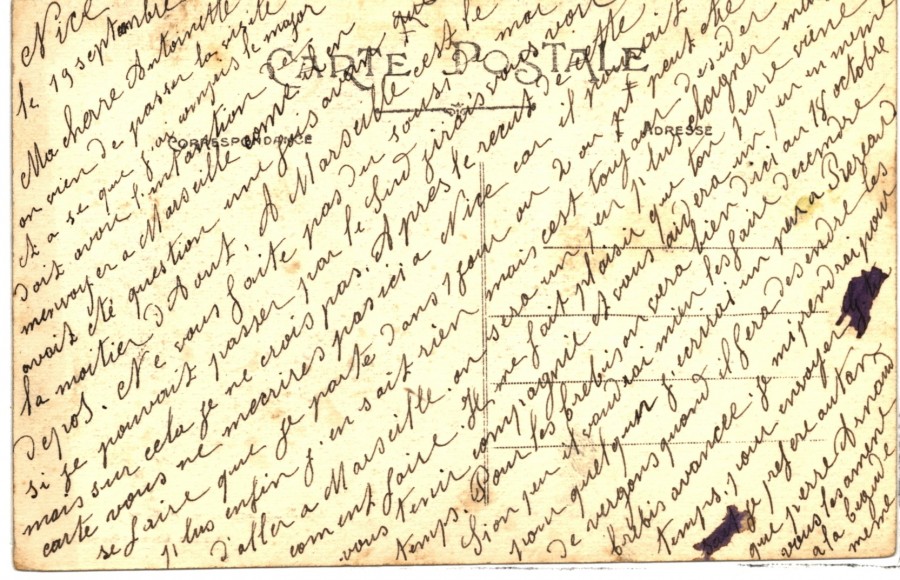 Nice
le 19 septembre
Ma chere Antoinette
on vien de passer la visite
et a se que j'ai compris le major
doit avoir l'intantion de
menvoyer a Marseille come en
avait été question une fois avant
la moitier d'Aout, A Marseille c'est le
depos. Ne vous faite pas du sousi
si je pouvait passer par le Sud j'irais vous voir
mais sur cela je ne crois pas. Apres le recut de cette
carte vous ne mecrires pas ici a Nice car il
se faire que je parte dans 1 jour ou 2 ou peut etre
plus enfin j'en sait rien mais cest toujour desider
d'aller a Marseille. on sera un peu plus eloigner
coment faire. Il me fait plaisir que ton pere viene
vous tenir compagnie et vous aidera un peu en meme
temps. Pour les brebis on vera bien dici au 18 octobre
Si on peu il voudrai mieu les faire decendre
pour quelqun j'ecrirai un peu a
de vergons quand il fera desendre les
brebis avancee. je mi prendrai pour
temps, pour envoyer
je prefere autan
que pierre Arnaud
vous les amene
a la begude
meme
CARTE POSTALE
CORRESPONDANCE
ADRESSE